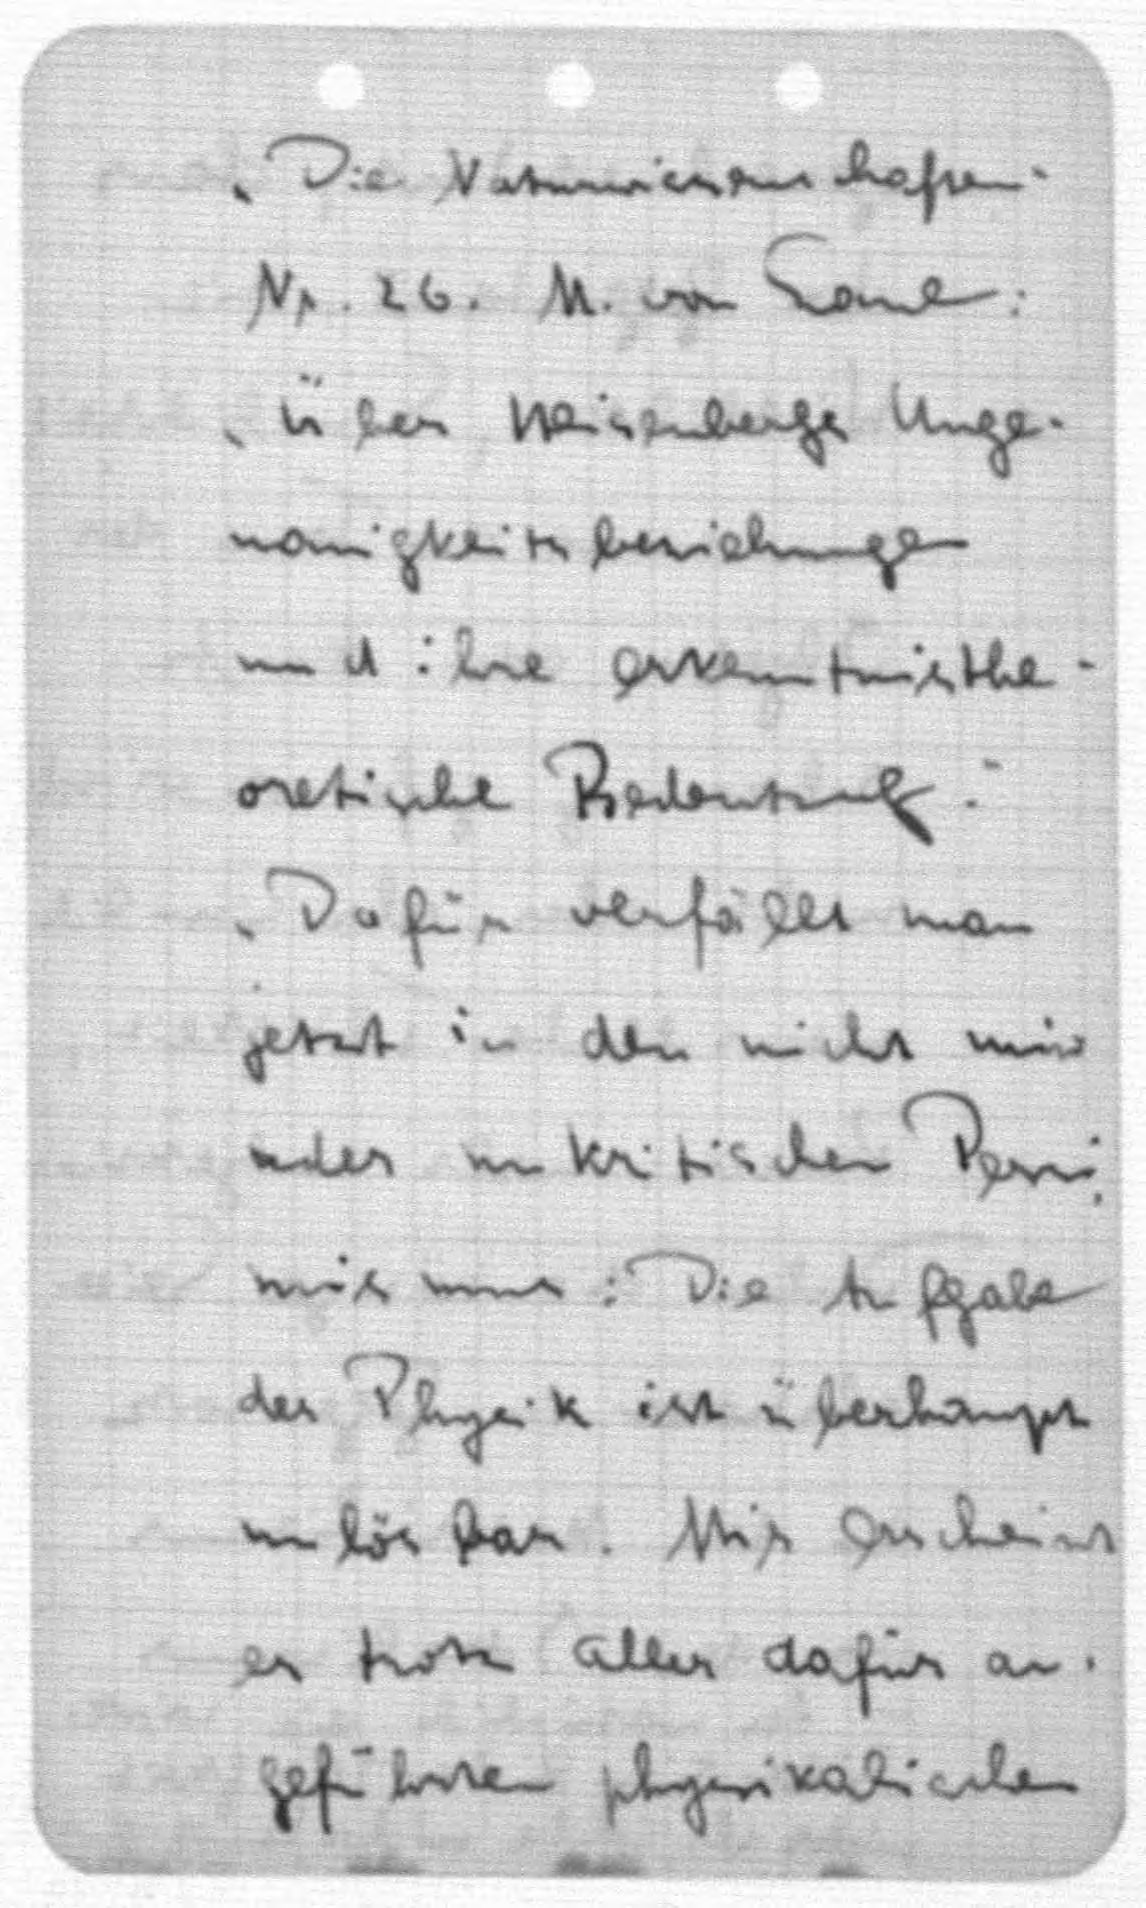 „Die Naturwissenschaften“
Nr. 26. M. von Laue:
„Über Heisenbergs Unge-
nauigkeitsbeziehungen
und ihre erkenntnisthe-
oretische Bedeutung.“
„Dafür verfällt man
jetzt in den nicht min
der unkritischen Pessi,
mismus: Die Aufgabe
der Physik ist überhaupt
unlösbar. Mir erscheint
es trotz aller dafür an-
geführten physikalischen